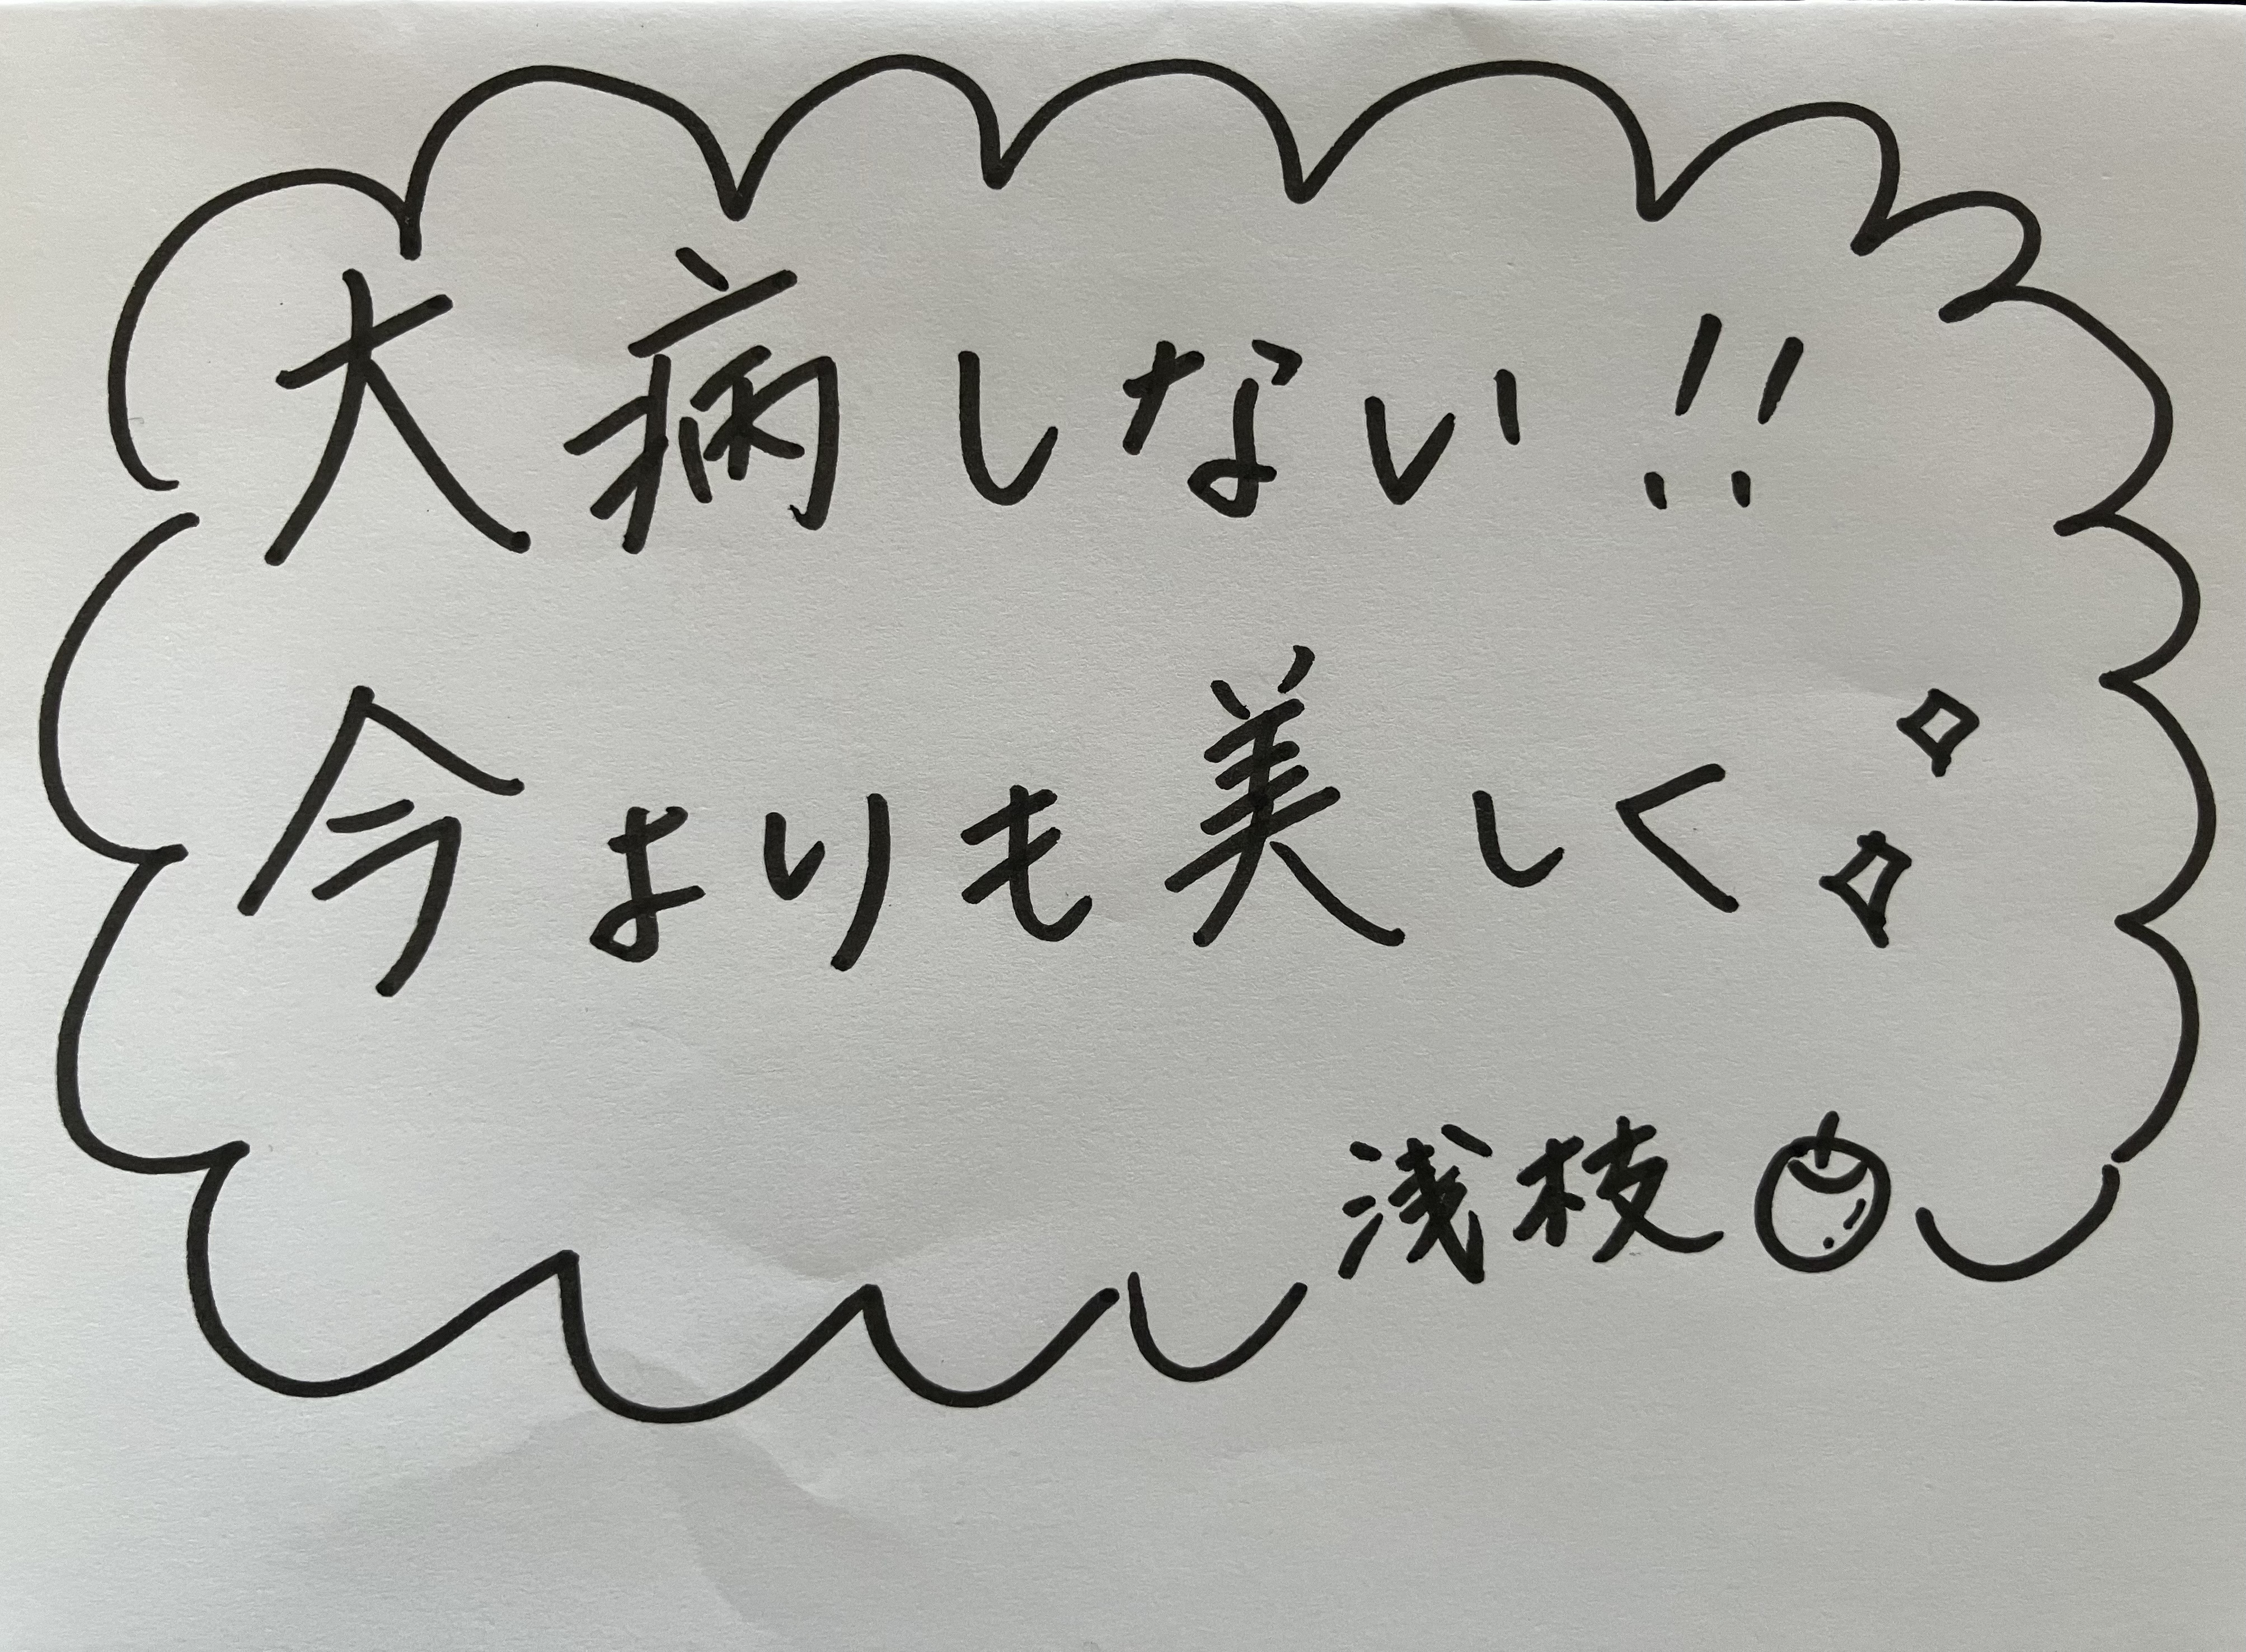 大病しない!!
今よりも美しく
浅枝